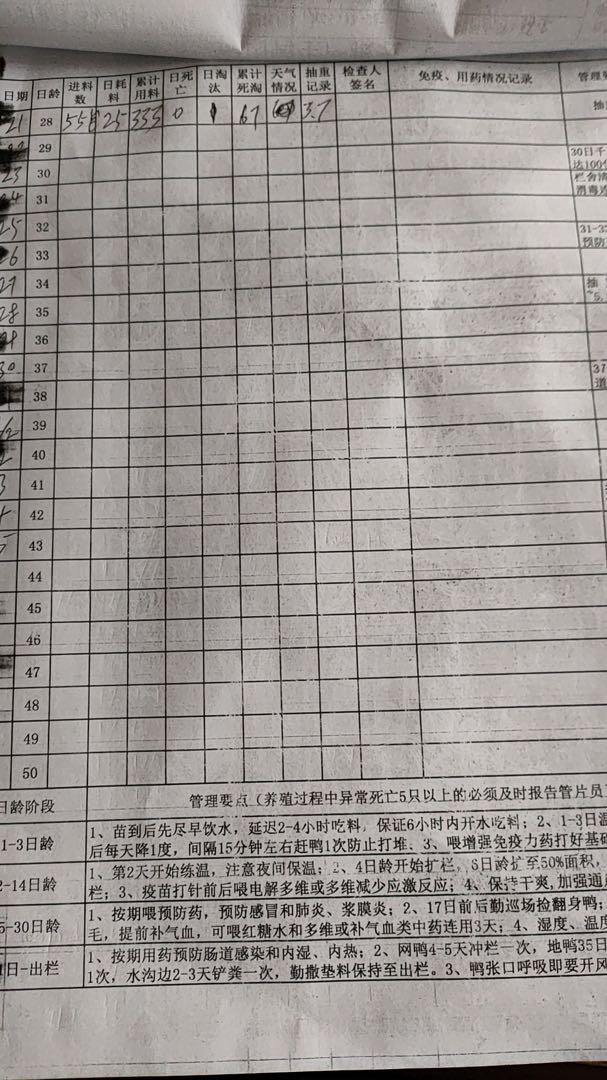 日期 日龄 进料数 日耗料 累计用料 日死亡 日淘汰 累计死淘 天气情况 抽重记录 检查人签名 免疫、用药情况记录 管理要
21 28 558 25 333 0 1 67 3.7 抽
29
23 30 30日千 达100% 栏舍清 消毒
24 31
25 32 31-33 预防
26 33
27 34 抽 ~5.
28 35
36
30 37 37 道
38
39
40
3 41
4 42
5 43
44
45
46
47
48
49
50
日龄阶段 管理要点（养殖过程中异常死亡5只以上的必须及时报告管片员
1-3日龄 1、苗到后先尽早饮水，延迟2-4小时吃料，保证6小时内开水吃料；2、1-3日温
后每天降1度，间隔15分钟左右赶鸭1次防止打堆、3、喂增强免疫力药打好基础
-14日龄 1、第2天开始练温，注意夜间保温；2、4日龄开始扩栏，6日龄扩至50%面积，
栏；3、疫苗打针前后喂电解多维或多维减少应激反应；4、保持干爽,加强通
-30日龄 1、按期喂预防药，预防感冒和肺炎、浆膜炎；2、17日前后勤巡场捡翻身鸭；
毛，提前补气血，可喂红糖水和多维或补气血类中药连用3天；4、湿度、温度
日-出栏 1、按期用药预防肠道感染和内湿、内热；2、网鸭4-5天冲栏一次，地鸭35日
1次，水沟边2-3天铲粪一次，勤撒垫料保持至出栏。3、鸭张口呼吸即要开风